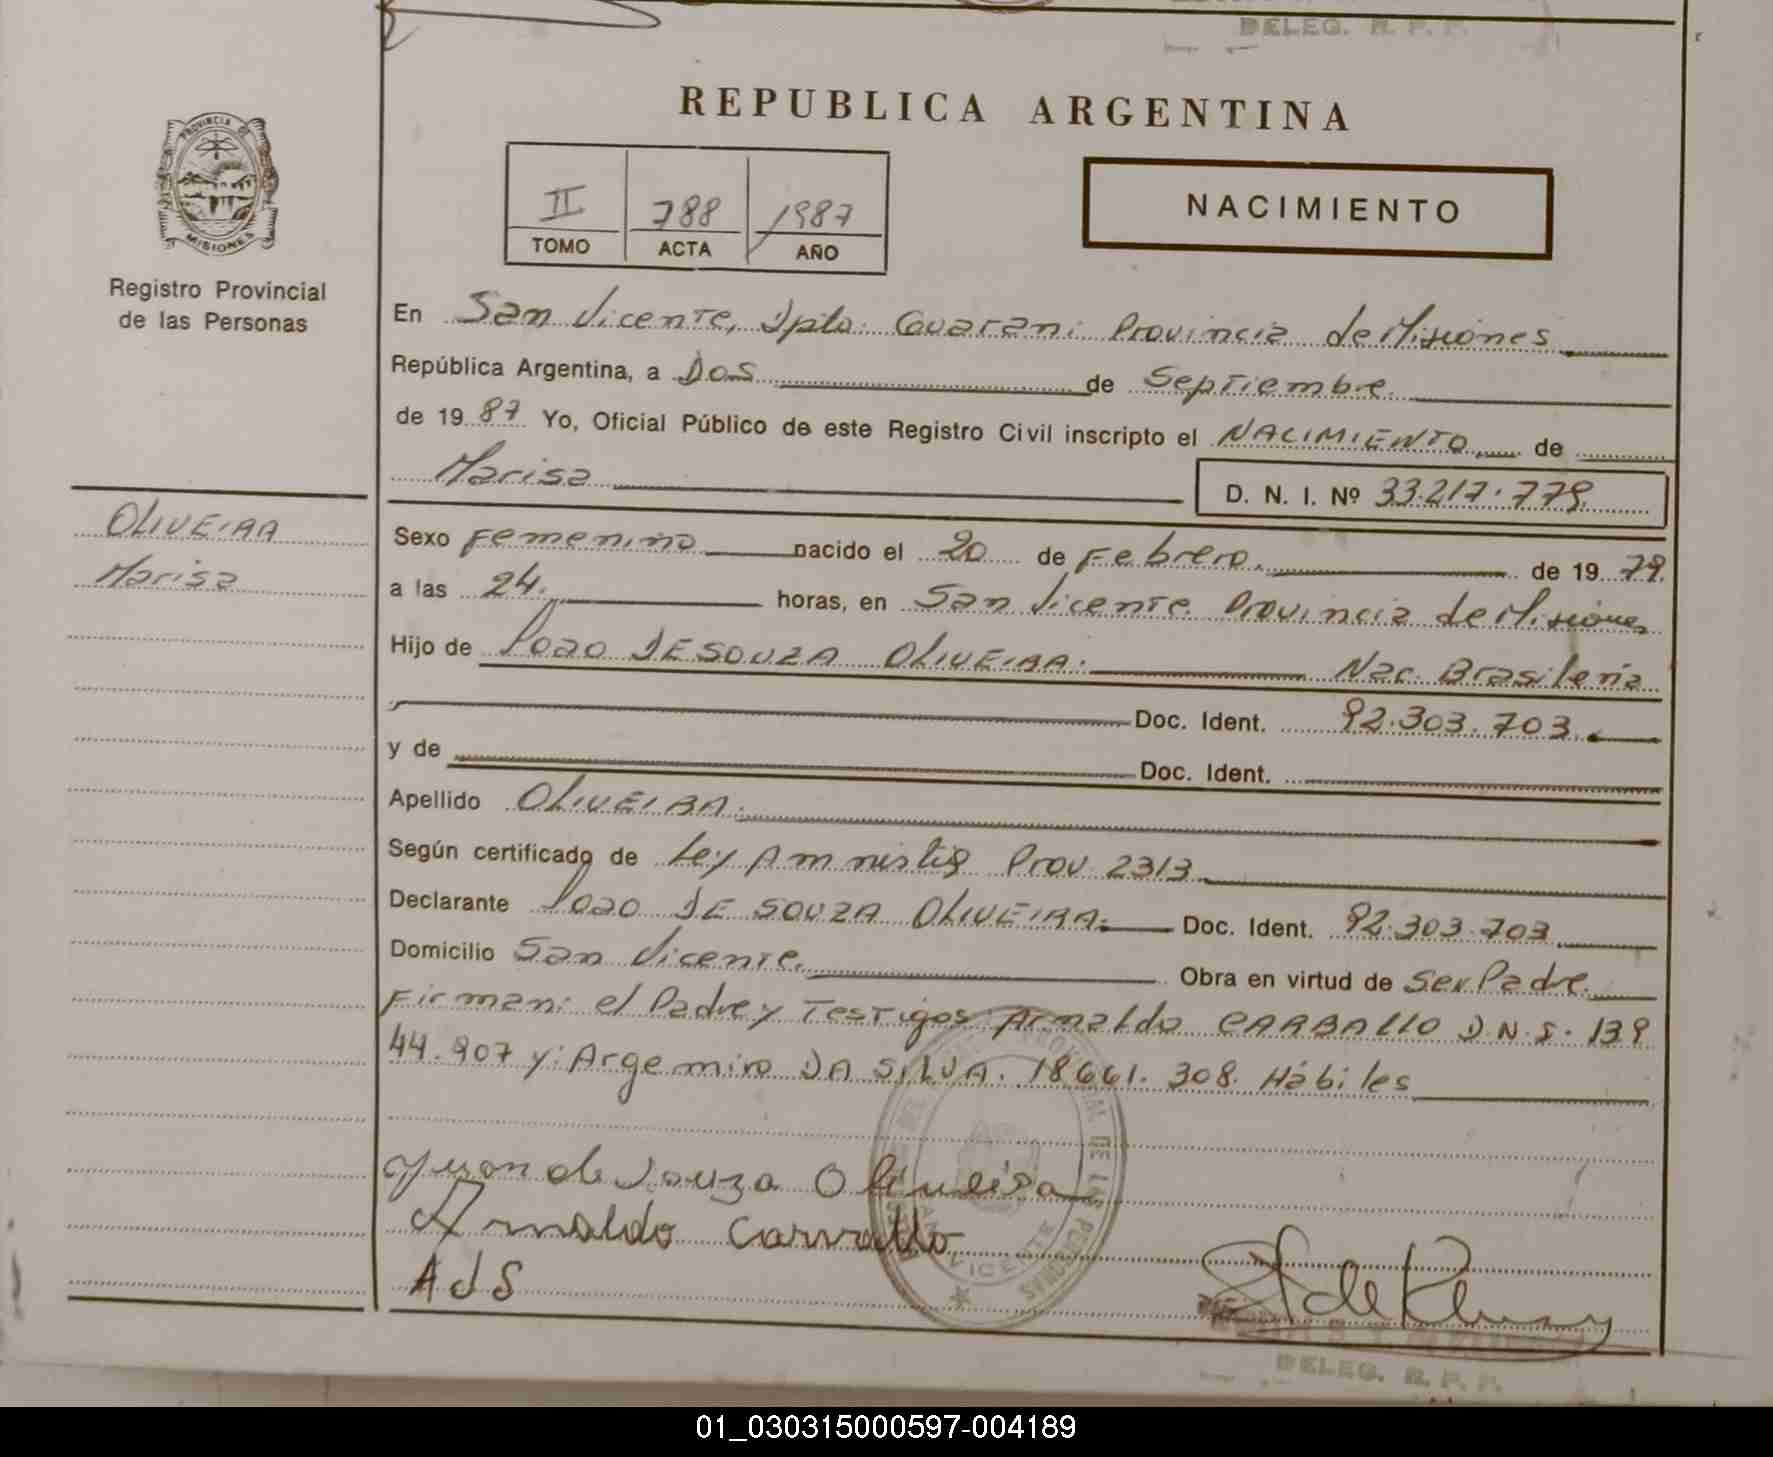 DELEG. R. P. P.
REPUBLICA ARGENTINA
PROVINCIA DE
MISIONES
Registro Provincial
de las Personas
II 788 1987
TOMO ACTA AÑO
NACIMIENTO
En San Vicente, Dpto. Guarani Provincia de Misiones
República Argentina, a Dos de Septiembre
de 19 87 Yo, Oficial Público de este Registro Civil inscripto el NACIMIENTO de
Marisa D. N. I. Nº 33.217.779
OLIVEIRA
Marisa
Sexo Femenino nacido el 20 de Febrero. de 19 79.
a las 24. horas, en San Vicente Provincia de Misiones
Hijo de Joao DE SOUZA OLIVEIRA. Nac. Brasileña
Doc. Ident. 92.303.703.
y de Doc. Ident.
Apellido OLIVEIRA.
Según certificado de Ley Amnistia Prov. 2313
Declarante Joao DE SOUZA OLIVEIRA. Doc. Ident. 92.303.703
Domicilio San Vicente. Obra en virtud de Ser Padre.
Firman: el Padre y Testigos Arnaldo CARBALLO D.N.I. 139
44.907 y: Argemiro DA SILVA. 18661.308. Hábiles
de Souza Oliveira
Arnaldo Carvallo
AdS
VICENTE
DE LAS PERSONAS
DELEG. R. P. P.
01_030315000597-004189